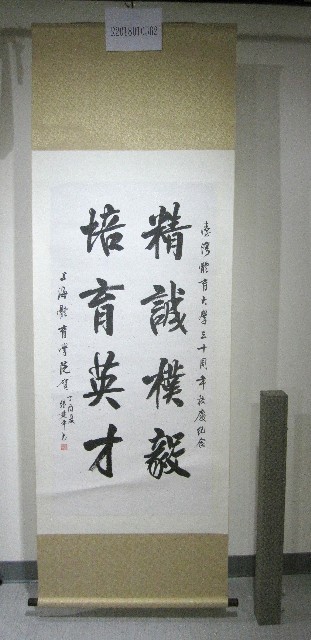 臺灣體育大學五十周年校慶紀念
精誠樸毅
培育英才
上海體育學院賀
丁酉夏